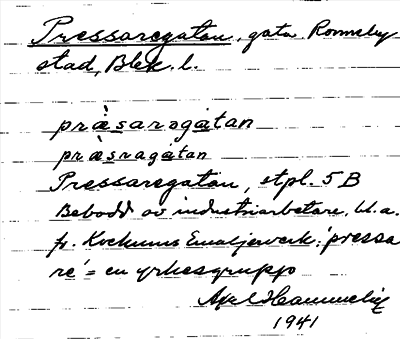 Pressaregatan, gata Ronneby
stad, Blek. l.
præ̀saragátan
præ̀sragátan
Pressaregatan, stpl. 5 B
Bebodd av industriarbetare, bl.a.
fr. Kockums Emaljewerk: 'pressa
re' = en yrkesgrupp
Axel
1941